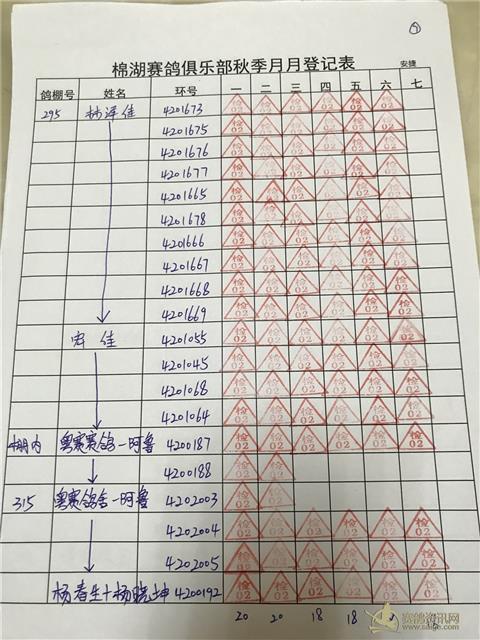 9
棉湖赛鸽俱乐部秋季月月登记表 安捷
鸽棚号 姓名 环号 一 二 三 四 五 六 七
295 杨泽佳 4201673 检02 检02 检02 检02 检02 检02
4201675 检02 检02 检02 检02 检02 检02
4201676 检02 检02 检02 检02 检02 检02
4201677 检02 检02 检02 检02 检02 检02
4201665 检02 检02 检02 检02 检02 检02
4201678 检02 检02 检02 检02 检02 检02
4201666 检02 检02 检02 检02 检02 检02
4201667 检02 检02 检02 检02 检02 检02
4201668 检02 检02 检02 检02 检02 检02
4201669 检02 检02 检02 检02 检02 检02
宏佳 4201055 检02 检02 检02 检02 检02 检02
4201045 检02 检02 检02 检02 检02 检02
4201068 检02 检02 检02 检02 检02 检02
4201064 检02 检02 检02 检02 检02 检02
棚内 粤赛赛鸽一阿鲁 4200187 检02 检02 检02 检02 检02 检02
4200188 检02 检02
315 粤赛鸽舍一阿鲁 4202003 检02 检02
4202004 检02 检02 检02 检02 检02 检02
4202005 检02 检02 检02 检02 检02 检02
杨春生+杨晓坤 4200192 检02 检02 检02 检02 检02 检02
20 20 18 18
赛鸽资讯网
www.saige.com